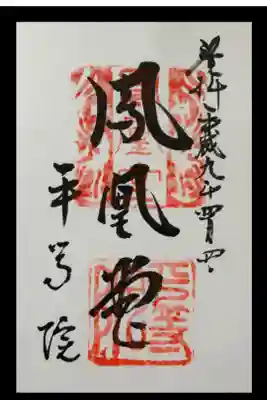 奉拝平成九年四月四日
鳳凰堂
平等院